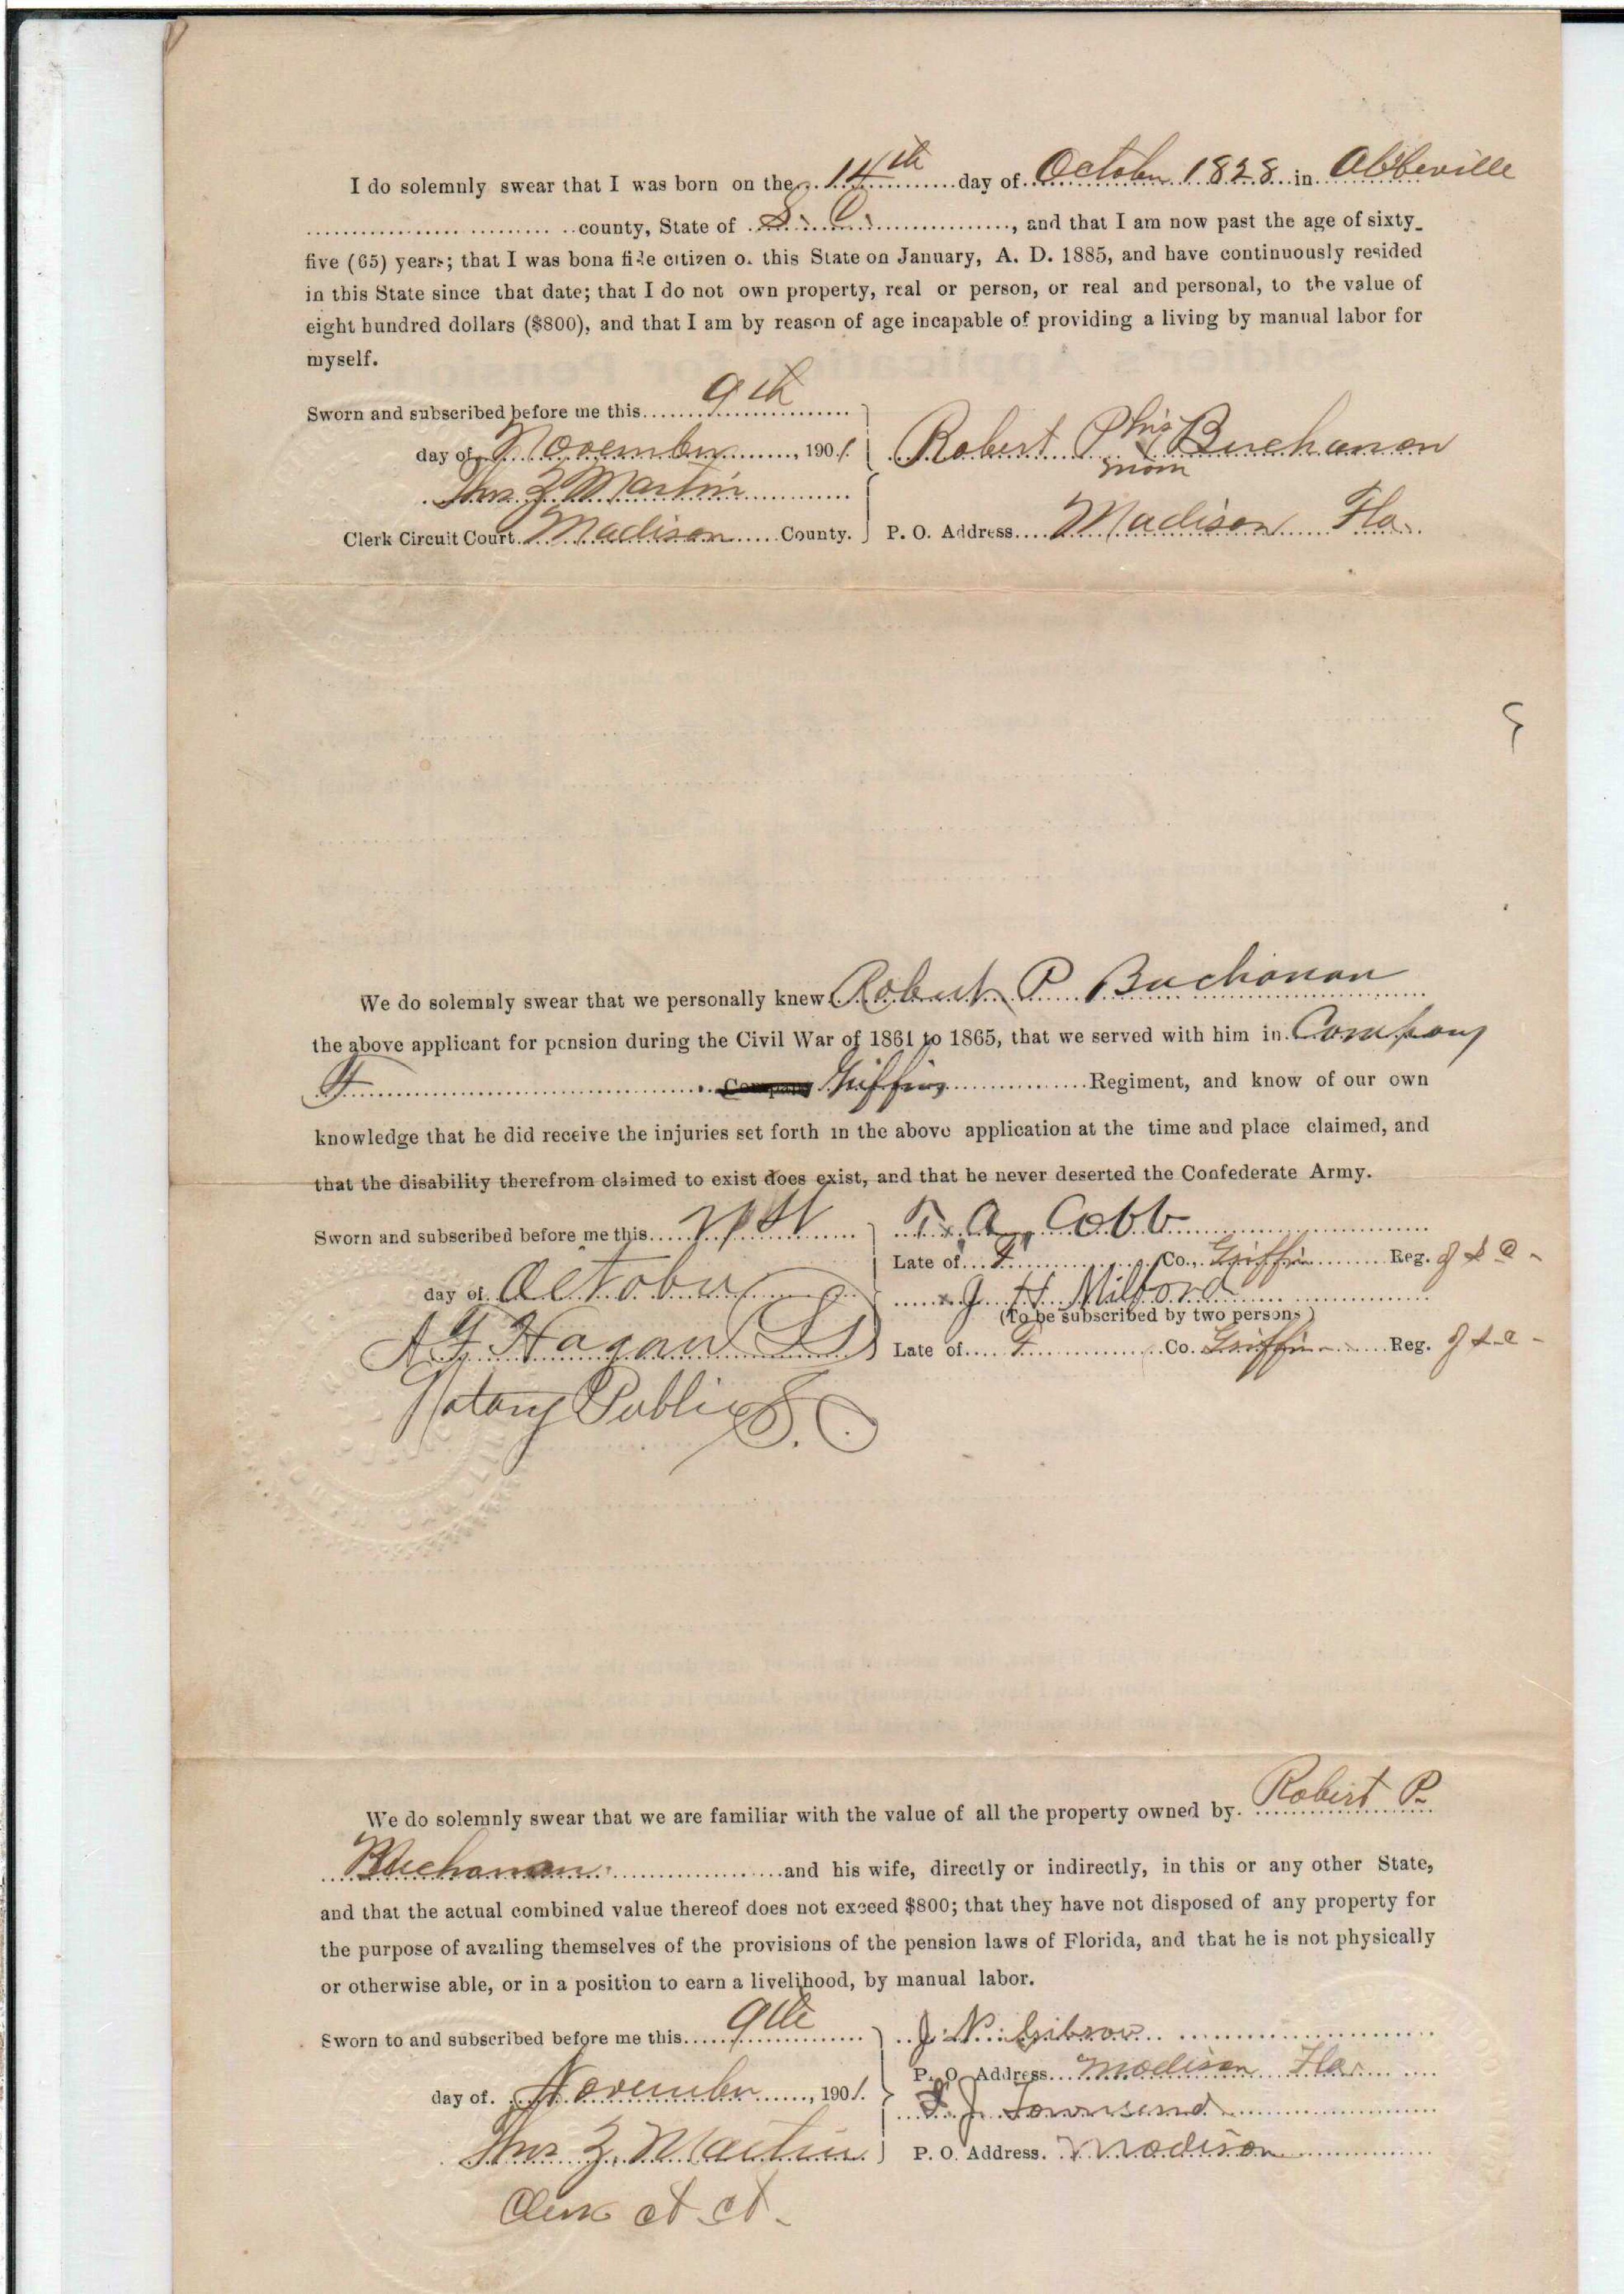 I do solemnly swear that I was born on the 14th day of October 1828 in Abbeville
county, State of S. C., and that I am now past the age of sixty_
five (65) years; that I was bona fide citizen o. this State on January, A. D. 1885, and have continuously resided
in this State since that date; that I do not own property, real or person, or real and personal, to the value of
eight hundred dollars ($800), and that I am by reason of age incapable of providing a living by manual labor for
myself.
Sworn and subscribed before me this 9th
day of November, 1901. Robert P his x Buchanan
mark
Thos Z Martin
Clerk Circuit Court Madison County. P. O. Address Madison Fla.
We do solemnly swear that we personally knew Robert P Buchanan
the above applicant for pension during the Civil War of 1861 to 1865, that we served with him in Company
F Griffin Regiment, and know of our own
knowledge that he did receive the injuries set forth in the above application at the time and place claimed, and
that the disability therefrom claimed to exist does exist, and that he never deserted the Confederate Army.
Sworn and subscribed before me this T. A. Cobb
Late of F Co., Griffin Reg.
day of October x J. H. Milford
(To be subscribed by two persons)
Hagan Late of F Co. Griffin Reg.
Notary Public S. C.
We do solemnly swear that we are familiar with the value of all the property owned by Robert P.
Buchanan and his wife, directly or indirectly, in this or any other State,
and that the actual combined value thereof does not exceed $800; that they have not disposed of any property for
the purpose of availing themselves of the provisions of the pension laws of Florida, and that he is not physically
or otherwise able, or in a position to earn a livelihood, by manual labor.
Sworn to and subscribed before me this 9th J. N. Gibson
P. O. Address Madison Fla.
day of November, 1901. J. Townsend
Thos Z. Martin P. O. Address. Madison
Clerk Ct Ct.